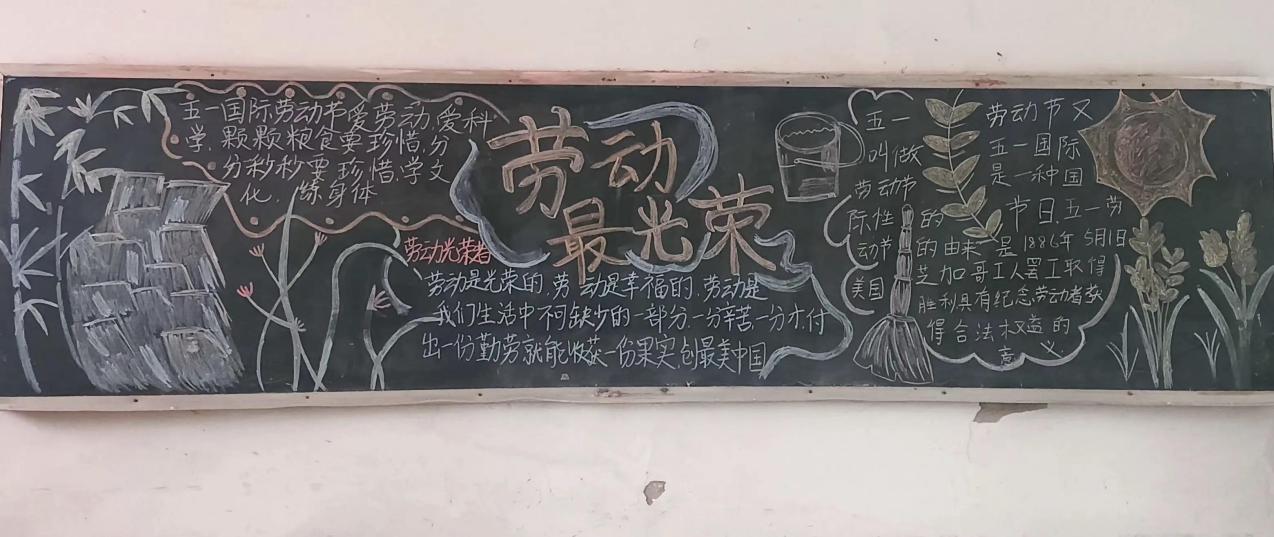 五一国际劳动节爱劳动,爱科
学,颗颗粮食要珍惜,分
分秒秒要珍惜,学文
化,炼身体
劳动
最光荣
劳动光荣者
劳动是光荣的,劳动是幸福的,劳动是
我们生活中不可缺少的一部分,一分辛苦一分才,付
出一份勤劳就能收获一份果实,创最美中国
五一 劳动节又
叫做 五一国际
劳动节 是一种国
际性的 节日,五一劳
动节的由来是1886年5月1日
美国芝加哥工人罢工取得
胜利具有纪念劳动者获
得合法权益的
意义